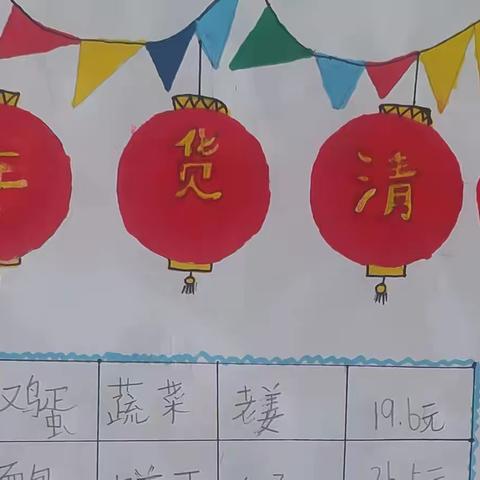 年 货 清
鸡蛋 蔬菜 老姜 19.6元
面包